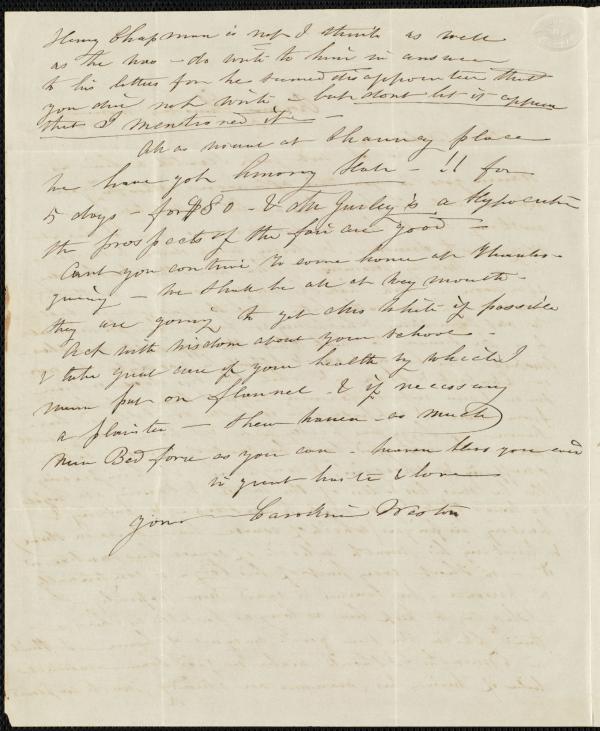 Henry Chapman is not I think as well
as he was - do write to him in answer
to his letters for he seemed disappointed that
you did not write - but dont let it appear
that I mentioned it -
All as usual at Chauncy place
We have got Amory Hall - !! for
5 days - for $80 - & Mr Gurley is a Hypocrite
the prospects of the fair are good -
Cant you contrive to come home at Thanks-
giving - we shall be all at Weymouth -
they are going to get            if possible
Act with wisdom about your school -
& take great care of your health by which I
mean put on flannel - & if necessary
a plaister -             as much
New Bedford as you can - heaven bless you
in great haste & love
yours Caroline Weston